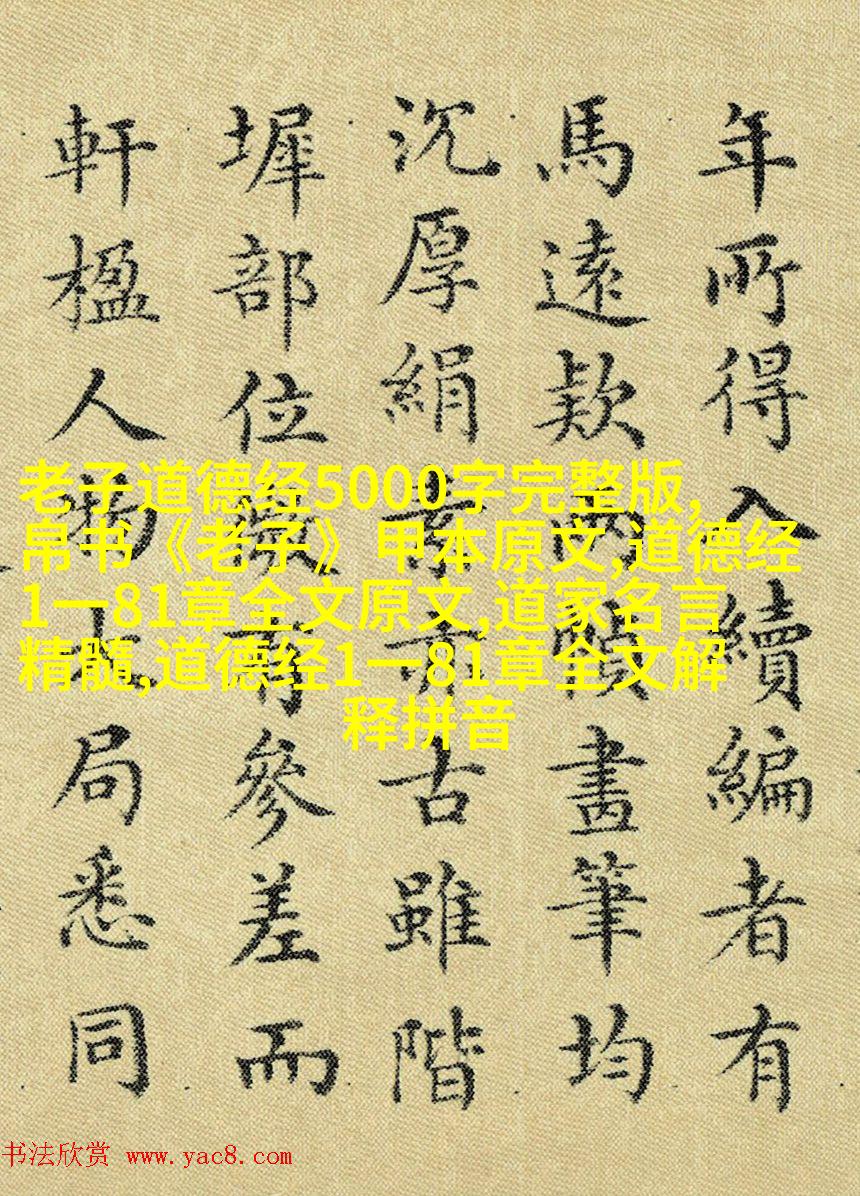 年所得入續編者有
馬遠款兩幀畫筆均
沉厚絹素亦古雖階
墀部位微有參差而
軒楹人物大局悉同
老子道德经5000字完整版,
帛书《老子》甲本原文,道德经
1一81章全文原文,道家名言
精髓,道德经1一81章全文解
释拼音
书法欣赏 www.yac8.com